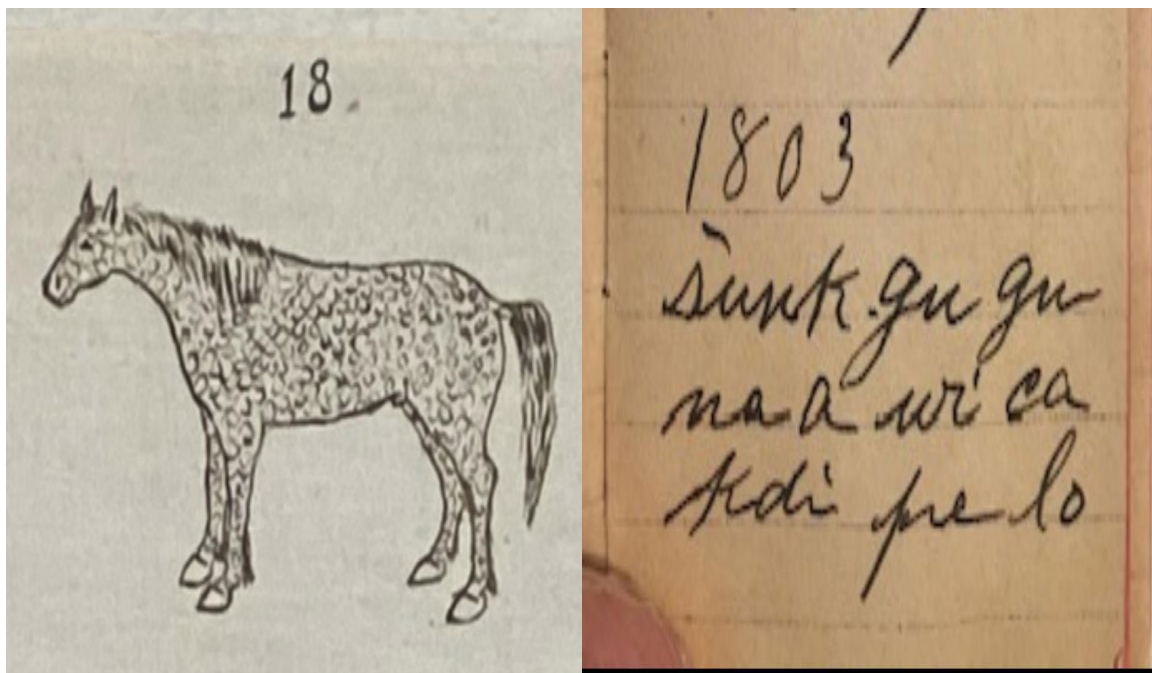 18.
1803
šunk.gu gu-
na a wi ca
kdi pe lo